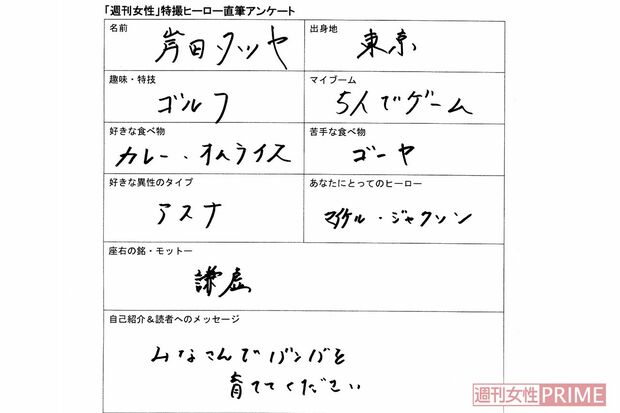 「週刊女性」特撮ヒーロー直筆アンケート
名前
岸田タツヤ
出身地
東京
趣味・特技
ゴルフ
マイブーム
5人でゲーム
好きな食べ物
カレー・オムライス
苦手な食べ物
ゴーヤ
好きな異性のタイプ
アスナ
あなたにとってのヒーロー
マイケル・ジャクソン
座右の銘・モットー
謙虚
自己紹介＆読者へのメッセージ
みなさんでバンバを
育ててください
週刊女性PRIME